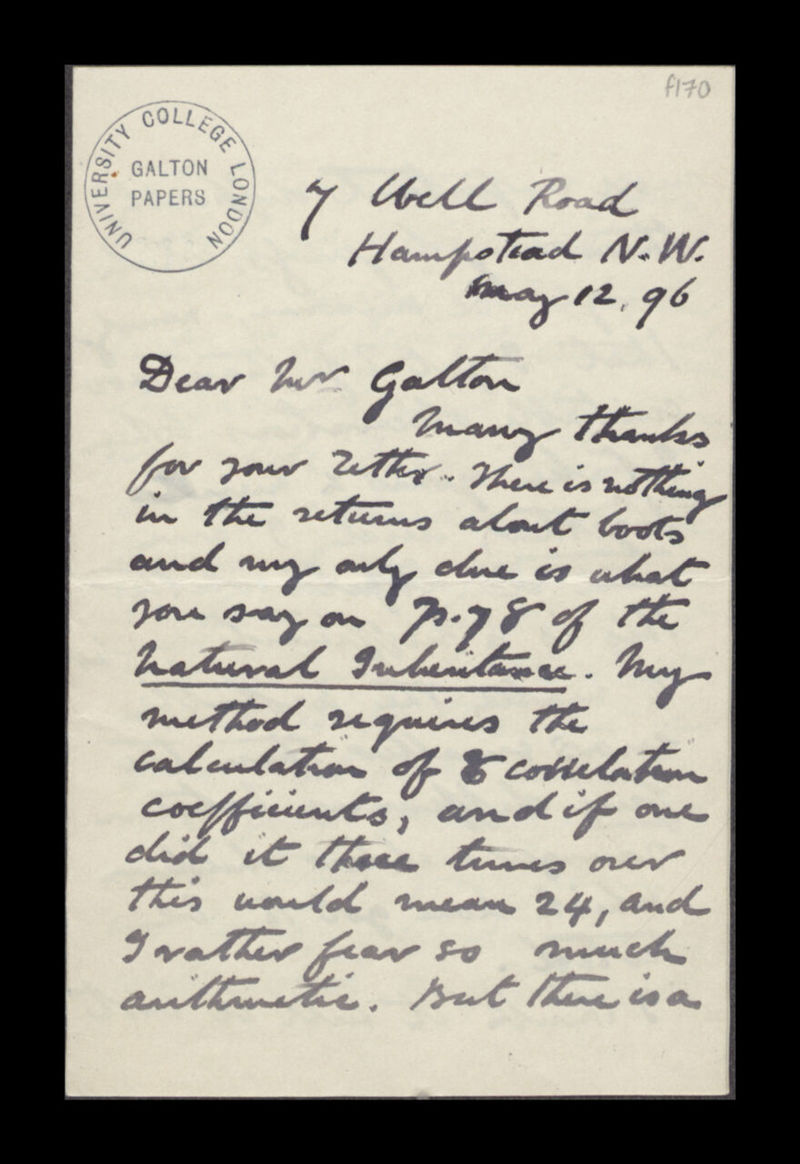 f170
UNIVERSITY COLLEGE LONDON
GALTON
PAPERS
7 Well Road
Hampstead N.W.
May 12. 96
Dear Mr Galton
Many thanks
for your letter. There is nothing
in the returns about boots
and my only clue is what
you say on p.78 of the
Natural Inheritance. My
method requires the
calculation of 8 correlation
coefficients, and if one
did it three times over
this would mean 24, and
I rather fear so much
arithmetic. But there is a